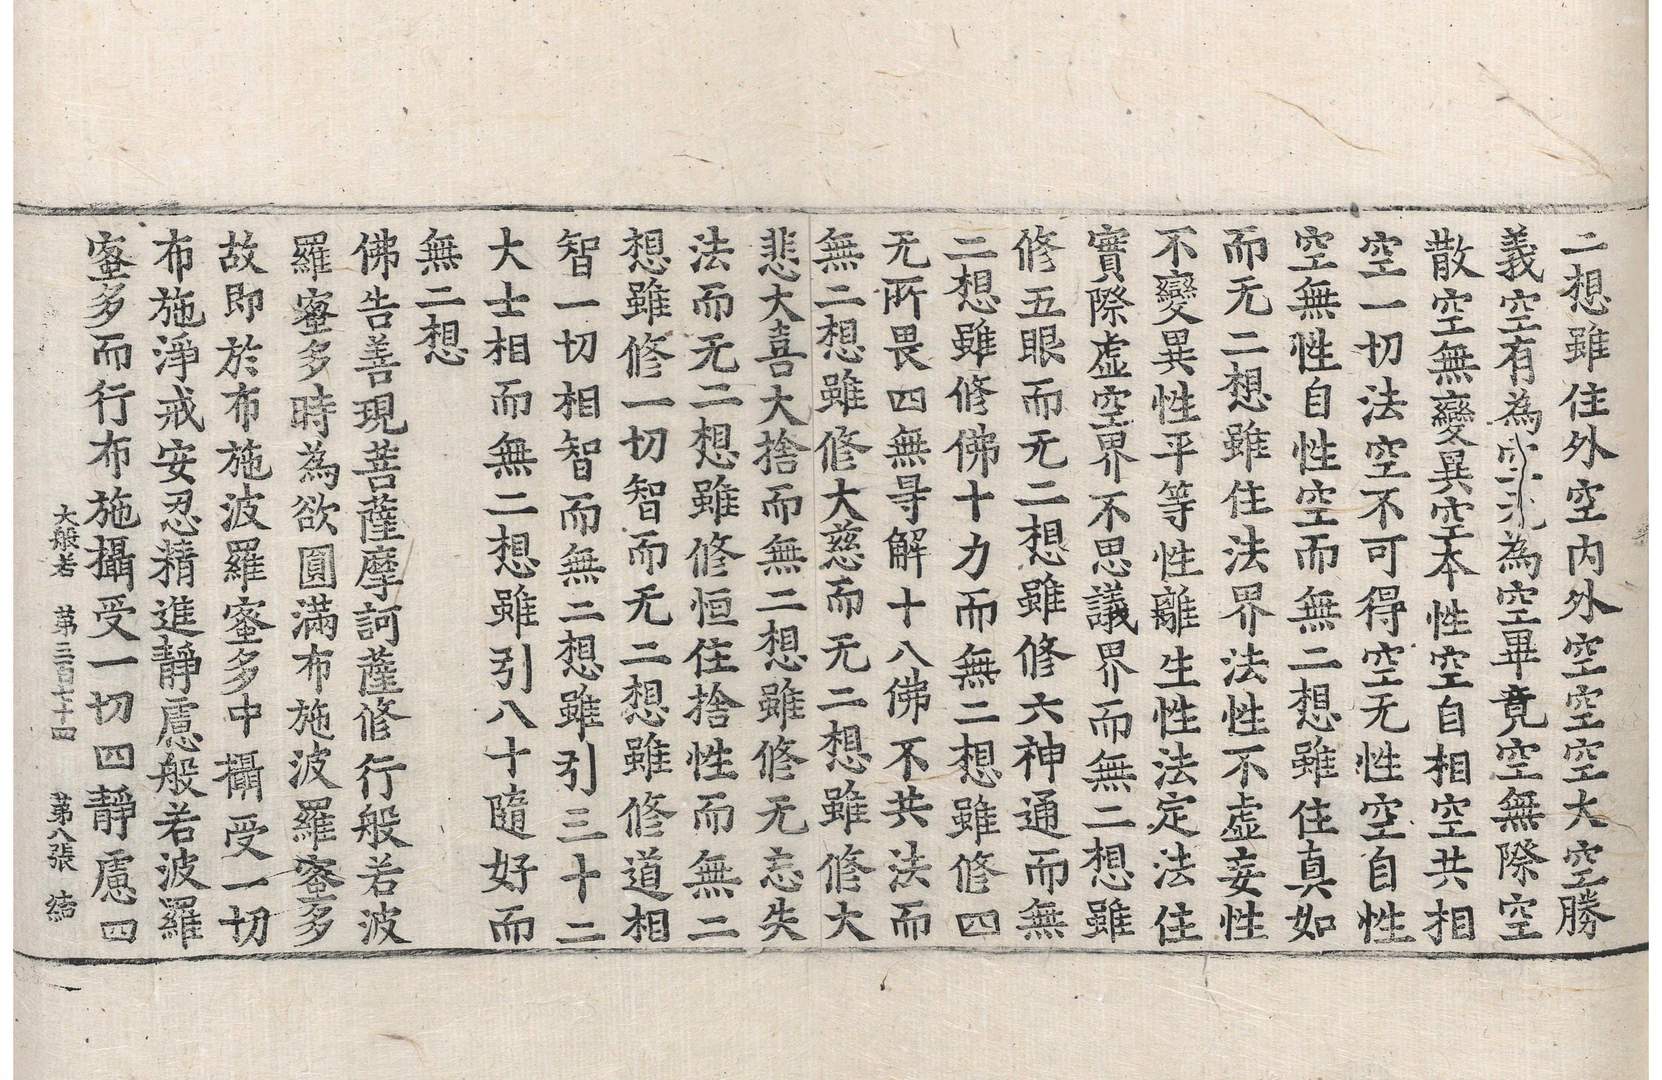 二想雖住外空内外空空空大空勝
義空有為空无為空畢竟空無際空
散空無變異空本性空自相空共相
空一切法空不可得空无性空自性
空無性自性空而無二想雖住真如
而无二想雖住法界法性不虛妄性
不變異性平等性離生性法定法住
實際虛空界不思議界而無二想雖
修五眼而无二想雖修六神通而無
二想雖修佛十力而無二想雖修四
无所畏四無㝵解十八佛不共法而
無二想雖修大慈而无二想雖修大
悲大喜大捨而無二想雖修无忘失
法而无二想雖修恒住捨性而無二
想雖修一切智而无二想雖修道相
智一切相智而無二想雖引三十二
大士相而無二想雖引八十隨好而
無二想
佛告善現菩薩摩訶薩修行般若波
羅蜜多時為欲圓滿布施波羅蜜多
故即於布施波羅蜜多中攝受一切
布施淨戒安忍精進靜慮般若波羅
蜜多而行布施攝受一切四靜慮四
大般若 第三百七十四 第八張